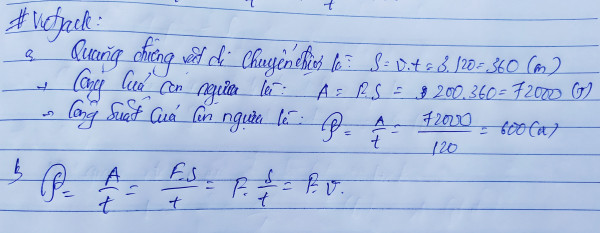 #Vietjack:
a, Quãng đường vật di chuyển được là: S = v.t = 3.120 = 360 (m)
→ Công của con ngựa là: A = F.S = 200.360 = 72000 (J)
→ Công suất của con ngựa là: P = A/t = 72000/120 = 600 (W)
b, P = A/t = F.S/t = F. S/t = F.v.